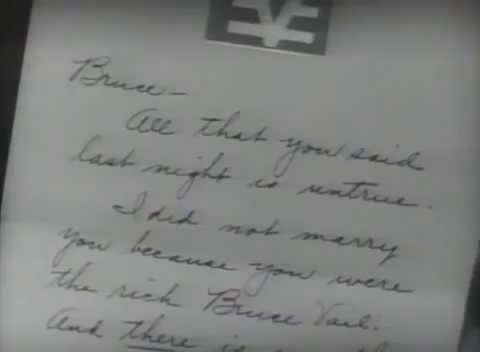 Bruce—
All that you said
last night is untrue.
I did not marry
you because you were
the rich Bruce Vail.
And there is